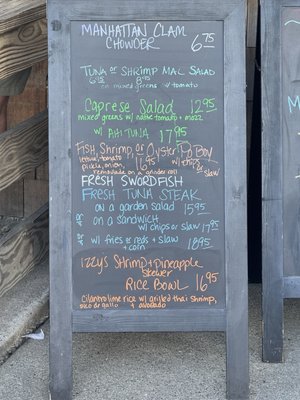 MANHATTAN CLAM
CHOWDER 6.75
TUNA or SHRIMP MAC SALAD
6.75 8.95
on mixed greens w/ tomato
Caprese Salad 12.95
mixed greens w/ native tomato + mozz
w/ AHI TUNA 17.95
FISH, SHRIMP, or OYSTER PO BOY
lettuce, tomato
pickle, onion, 16.95 w/ chips
remoulade on a grinder roll or slaw
FRESH SWORDFISH
FRESH TUNA STEAK
on a garden salad 15.95
or on a sandwich
w/ chips or slaw 17.95
or w/ fries or reds + slaw 18.95
+ corn
IZZY'S SHRIMP + PINEAPPLE
SKEWER
RICE BOWL 16.95
Cilantro lime rice w/ grilled thai shrimp,
pico de gallo + avocado